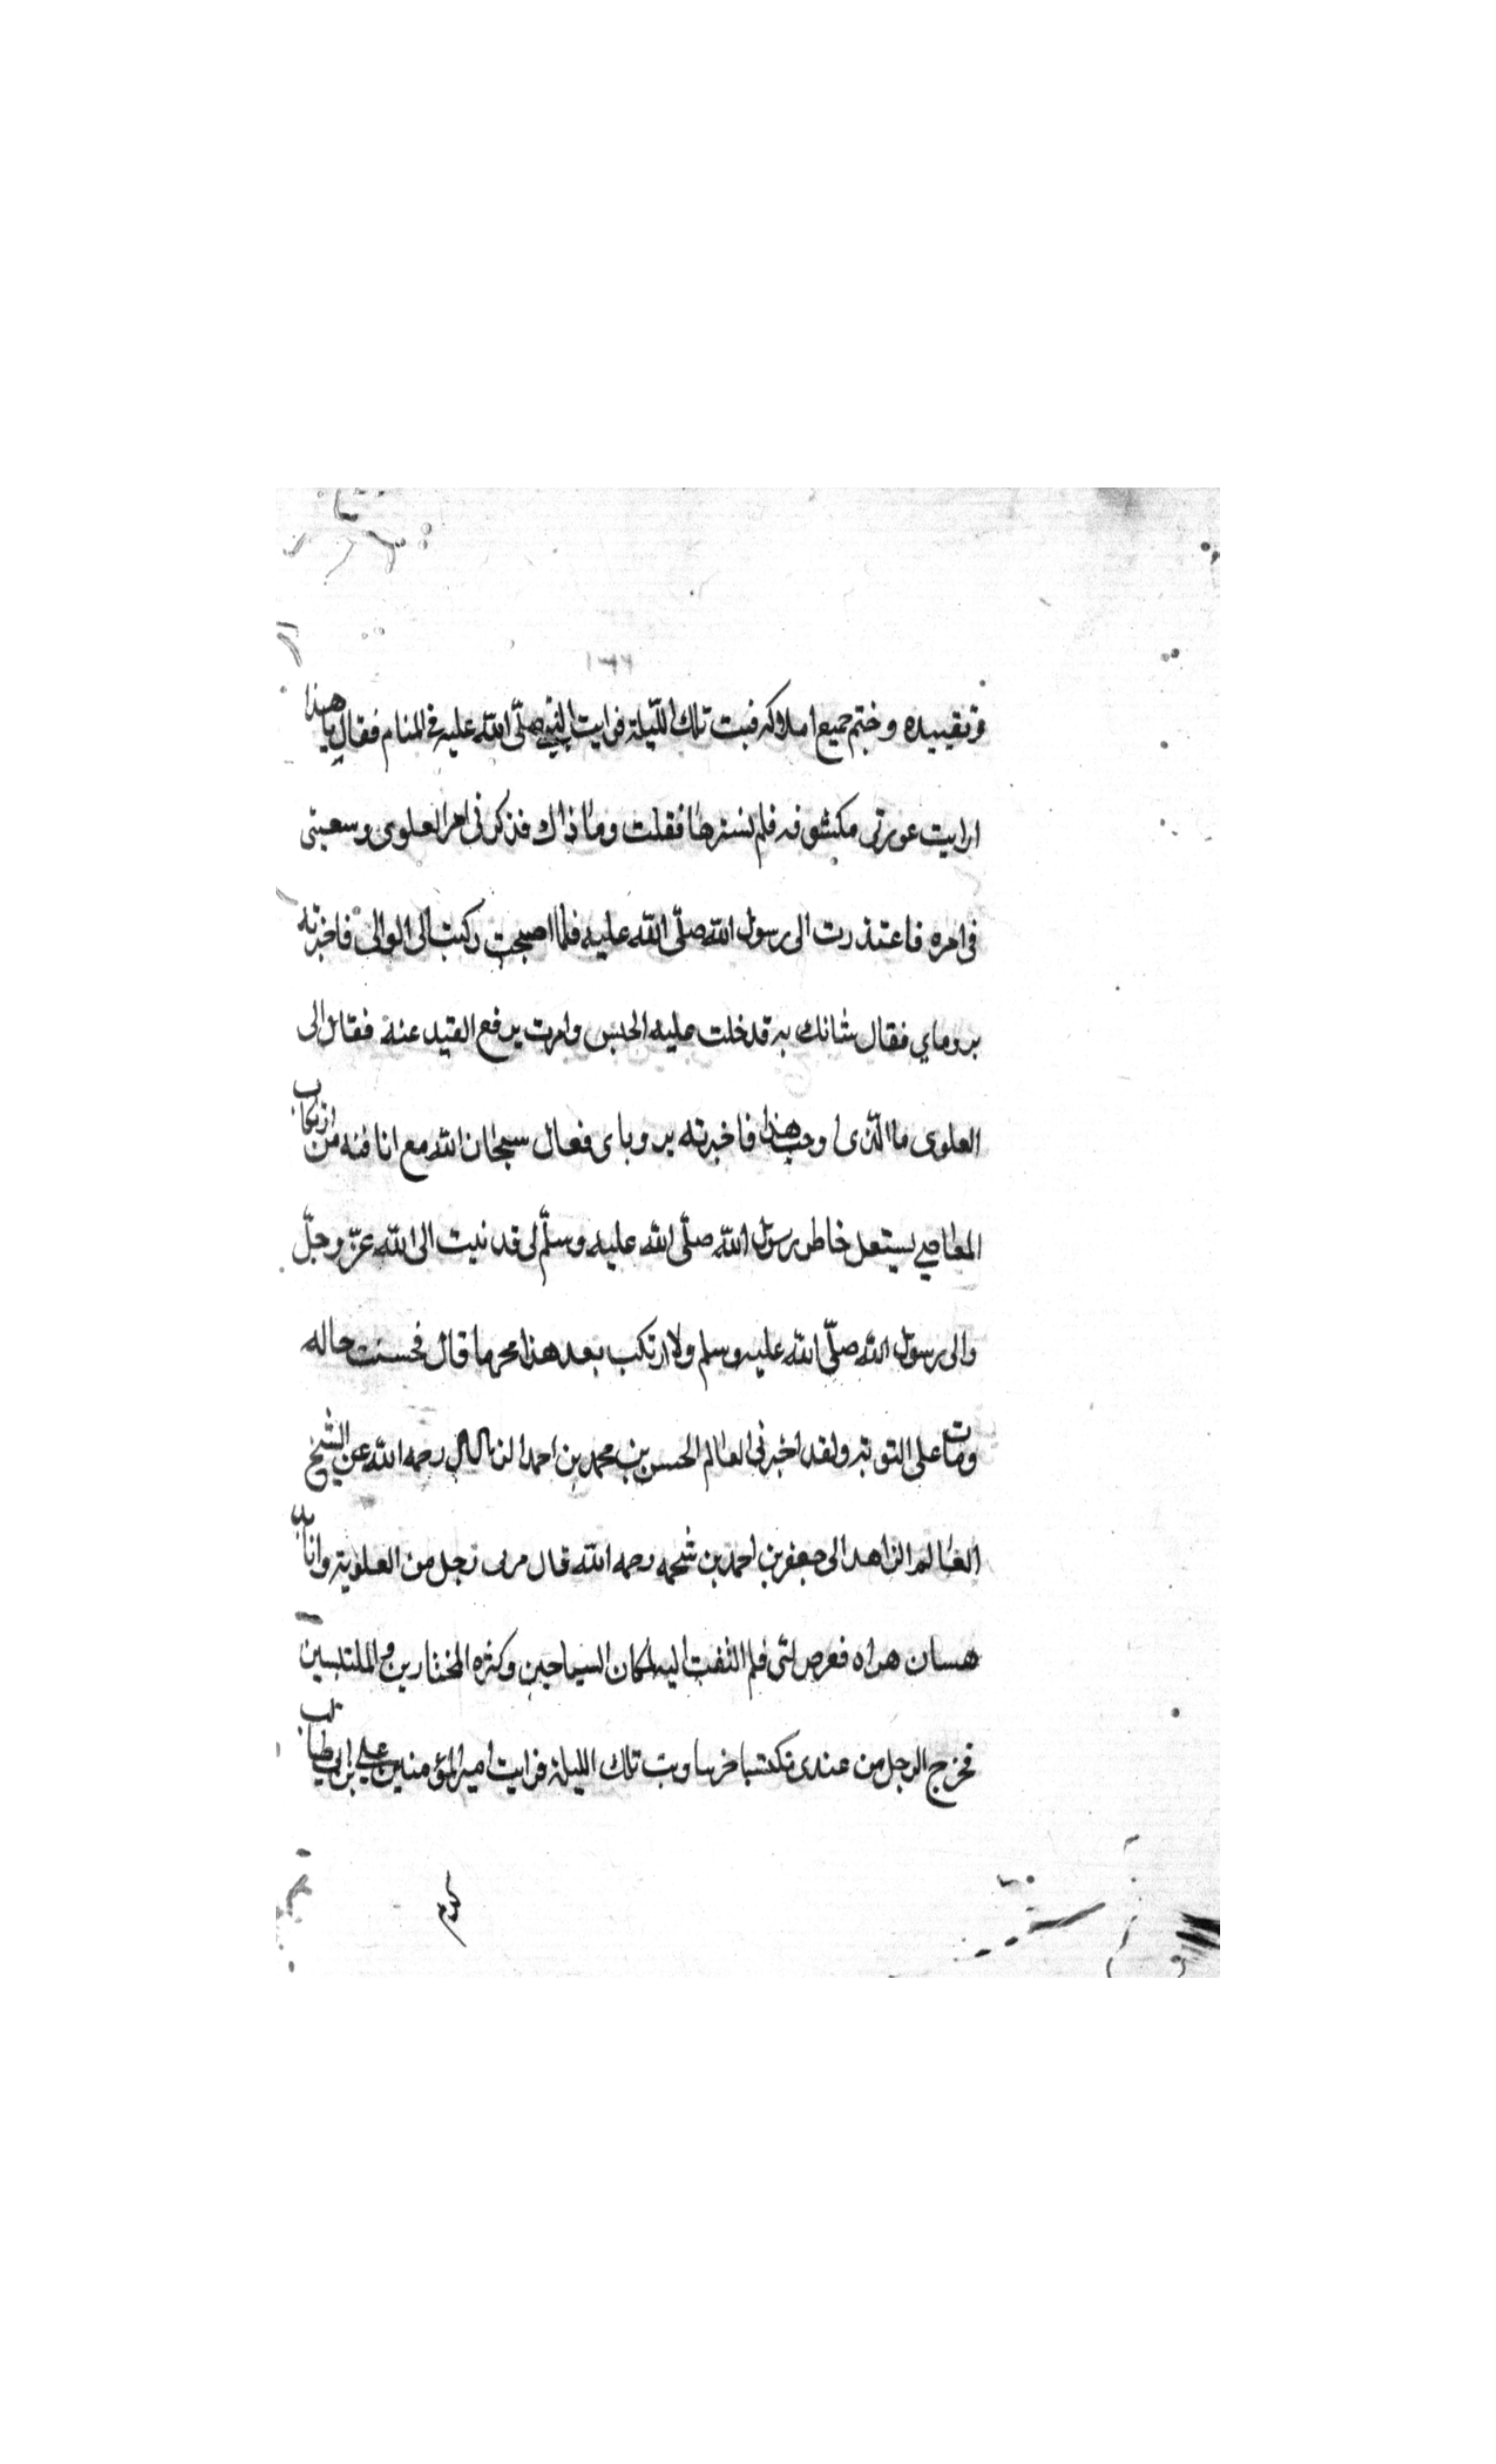 وتقييده وختم جميع املاكه فبت تلك الليلة فرايت النبي صلّى الله عليه في المنام فقال يا هذا
ارايت عورتي مكشوفه فلم تسترها فقلت وما ذاك فذكر لى امر العلوى وسعيتى
في امره فاعتذرت الى رسول الله صلّى الله عليه فلما اصبحت ركبت الى الوالى فاخبرته
بروماي فقال شانك به قدخلت عليه الحبس وامرت برفع القيد عنه فقال لى
العلوى ما الّذى اوجب هذا فاخبرته بروباى فقال سبحان الله مع انا فيه من ارتكاب
المعاصي يستعل خاطر رسول الله صلّى الله عليه وسلّم لى قد تبت الى الله عزّ وجلّ
والى رسول الله صلّى الله عليه وسلم ولا ارتكب بعد هذا محرما قال فحسنت حاله
ومات على التوبة ولقد اخبرنى العالم الحسن بن محمد بن احمد رحمه الله عن الشيخ
العالم الزاهد الى جعفر بن احمد بن شحمه رحمه الله قال مر بى رجل من العلوية وانا
هراه فعرض لى فلم التفت اليه لمكان السياحين وكثره المختارين و الملتبسين
فخرج الرجل من عندى وبت تلك الليلة فرايت امير المؤمنين علي بن ابي طالب